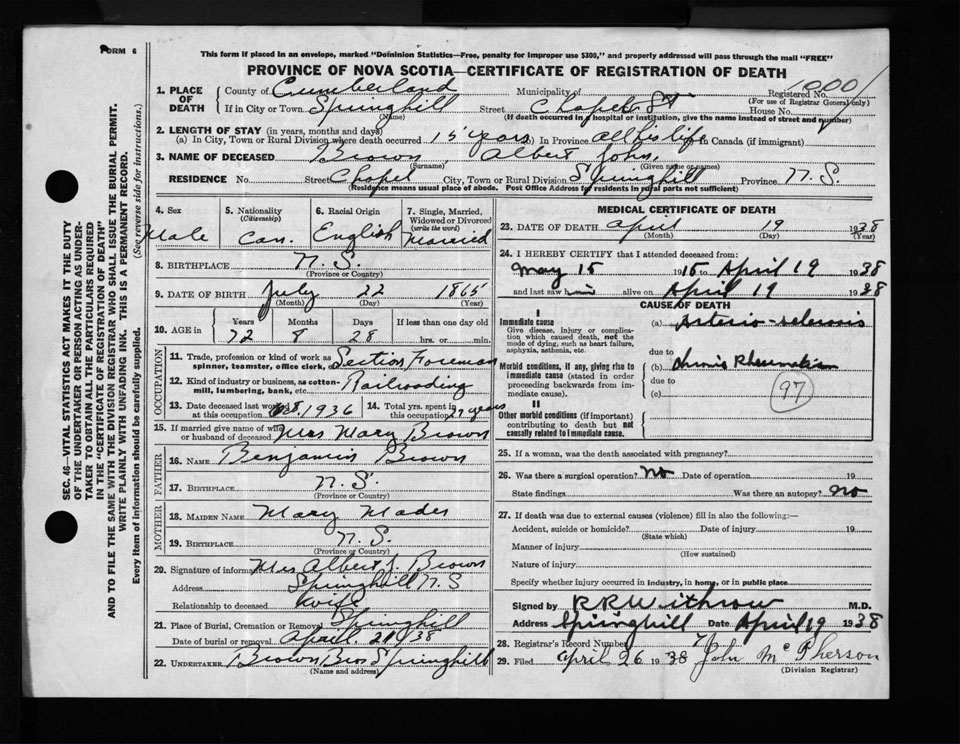 FORM 6
This form if placed in an envelope, marked "Dominion Statistics—Free, penalty for improper use $300," and properly addressed will pass through the mail "FREE"
PROVINCE OF NOVA SCOTIA—CERTIFICATE OF REGISTRATION OF DEATH
SEC. 46—VITAL STATISTICS ACT MAKES IT THE DUTY
OF THE UNDERTAKER OR PERSON ACTING AS UNDER-
TAKER TO OBTAIN ALL THE PARTICULARS REQUIRED
IN THE "CERTIFICATE OF REGISTRATION OF DEATH"
AND TO FILE THE SAME WITH THE DIVISION REGISTRAR WHO SHALL ISSUE THE BURIAL PERMIT.
WRITE PLAINLY WITH UNFADING INK. THIS IS A PERMANENT RECORD.
Every item of information should be carefully supplied. (See reverse side for instructions.)
1. PLACE OF DEATH County of Cumberland Municipality of Registered No. 1000
(For use of Registrar General only)
If in City or Town Springhill Street Chapel St House No.
(Name) (If death occurred in a hospital or institution, give the name instead of street and number)
2. LENGTH OF STAY (in years, months and days)
(a) In City, Town or Rural Division where death occurred 15 years (b) In Province all his life In Canada (if immigrant)
3. NAME OF DECEASED Brown, Albert John,
(Surname) (Given name or names)
RESIDENCE No. Street Chapel City, Town or Rural Division Springhill Province N.S.
(Residence means usual place of abode. Post Office Address for residents in rural parts not sufficient)
4. Sex Male
5. Nationality (Citizenship) Can.
6. Racial Origin English
7. Single, Married, Widowed or Divorced (write the word) Married
8. BIRTHPLACE N.S.
(Province or Country)
9. DATE OF BIRTH July 22 1865
(Month) (Day) (Year)
10. AGE in Years Months Days If less than one day old
72 8 28 hrs. or min.
OCCUPATION
11. Trade, profession or kind of work as spinner, teamster, office clerk, etc. Section Foreman
12. Kind of industry or business, as cotton-mill, lumbering, bank, etc. Railroading
13. Date deceased last worked at this occupation 1936
14. Total yrs. spent in this occupation 27 years
15. If married give name of wife or husband of deceased Mrs Mary Brown
FATHER
16. NAME Benjamin Brown
17. BIRTHPLACE N.S.
(Province or Country)
MOTHER
18. MAIDEN NAME Mary Mader
19. BIRTHPLACE N.S.
(Province or Country)
20. Signature of informant Mrs Albert J. Brown
Address Springhill N.S
Relationship to deceased Wife
21. Place of Burial, Cremation or Removal Springhill
Date of burial or removal April. 21/38
22. UNDERTAKER Brown Bros Springhill
(Name and address)
MEDICAL CERTIFICATE OF DEATH
23. DATE OF DEATH April 19 1938
(Month) (Day) (Year)
24. I HEREBY CERTIFY that I attended deceased from:
May 15 1915 to April 19 1938
and last saw him alive on April 19 1938
CAUSE OF DEATH
I
Immediate cause
Give disease, injury or complication which caused death, not the mode of dying, such as heart failure, asphyxia, asthenia, etc.
(a) Arterio-sclerosis
due to
Morbid conditions, if any, giving rise to immediate cause (stated in order proceeding backwards from immediate cause).
(b) Chronic Rheumatism
due to
(c)
97
II
Other morbid conditions (if important) contributing to death but not causally related to immediate cause.
25. If a woman, was the death associated with pregnancy?
26. Was there a surgical operation? No Date of operation 19
State findings Was there an autopsy? No
27. If death was due to external causes (violence) fill in also the following:—
Accident, suicide or homicide? Date of injury 19
(State which)
Manner of injury
(How sustained)
Nature of injury
Specify whether injury occurred in industry, in home, or in public place
Signed by R R Withrow M.D.
Address Springhill Date April 19 1938
28. Registrar's Record Number
29. Filed April 26 1938 John McPherson
(Division Registrar)